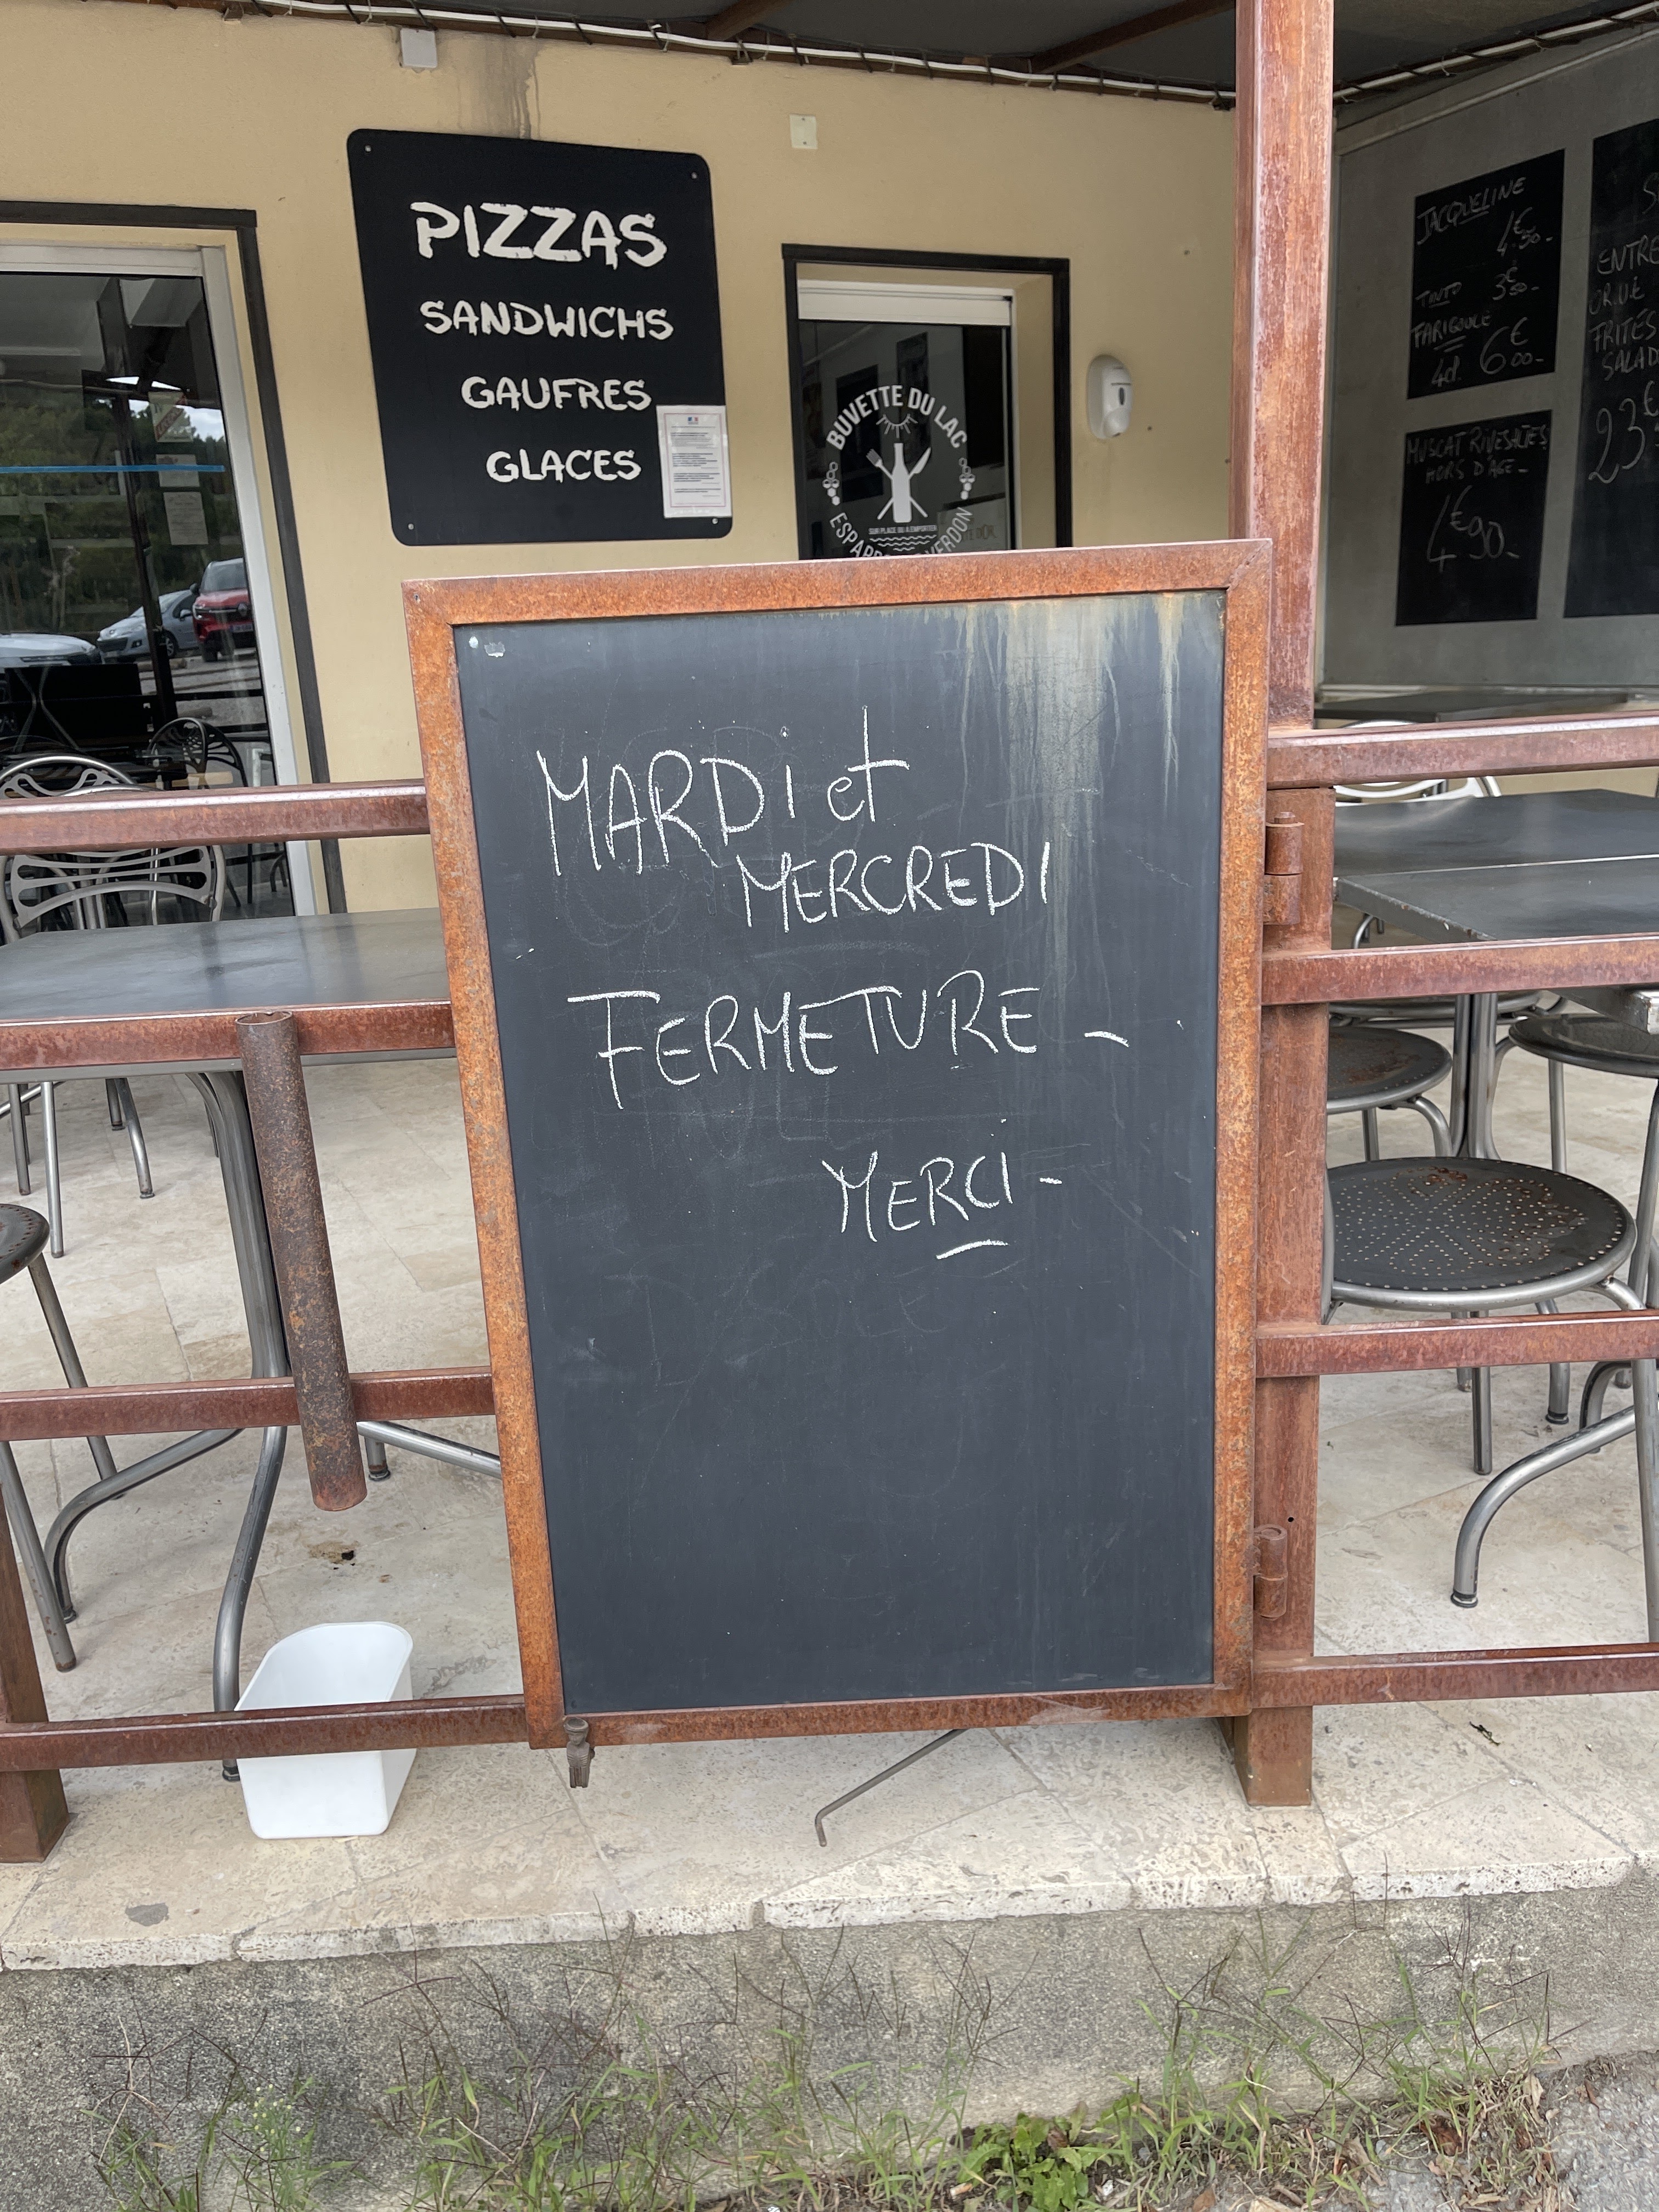 PIZZAS
SANDWICHS
GAUFRES
GLACES
BUVETTE DU LAC
SUR PLACE OU A EMPORTER
VERDON
JACQUELINE
4€50-
TINTO 3€50-
FARIGOULE
4cl. 6€00-
MUSCAT RIVESALTES
HORS D'AGE-
4€90-
ENTRE
FRITES
SALAD
23€
MARDI et
MERCREDI
FERMETURE -
MERCI -